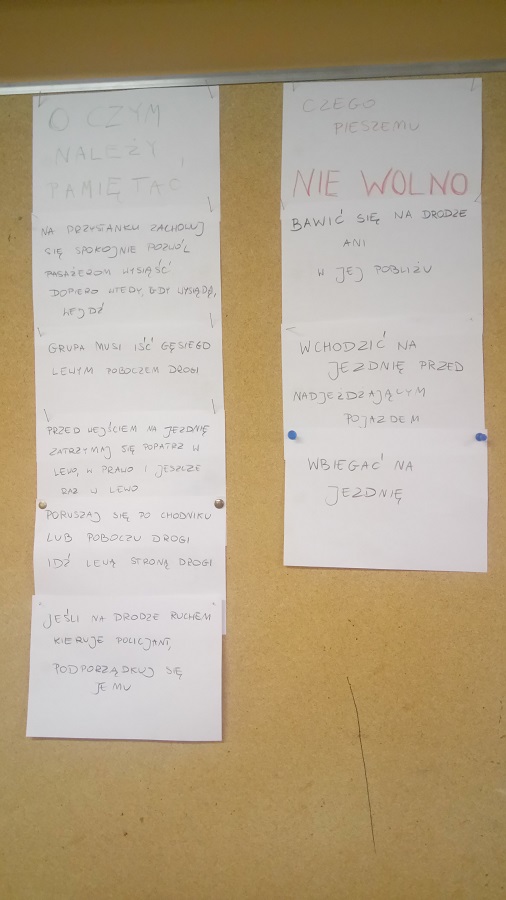 O CZYM
NALEŻY
PAMIĘTAĆ
NA PRZYSTANKU ZACHOWUJ
SIĘ SPOKOJNIE POZWÓL
PASAŻEROM WYSIĄŚĆ
DOPIERO WTEDY, GDY WYSIĄDĄ,
WEJDŹ
GRUPA MUSI IŚĆ GĘSIEGO
LEWYM POBOCZEM DROGI
PRZED WEJŚCIEM NA JEZDNIĘ
ZATRZYMAJ SIĘ POPATRZ W
LEWO, W PRAWO I JESZCZE
RAZ W LEWO
PORUSZAJ SIĘ PO CHODNIKU
LUB POBOCZU DROGI
IDŹ LEWĄ STRONĄ DROGI
JEŚLI NA DRODZE RUCHEM
KIERUJE POLICJANT,
PODPORZĄDKUJ SIĘ
JEMU
CZEGO
PIESZEMU
NIE WOLNO
BAWIĆ SIĘ NA DRODZE
ANI
W JEJ POBLIŻU
WCHODZIĆ NA
JEZDNIĘ PRZED
NADJEŻDZAJĄCYM
POJAZDEM
WBIEGAĆ NA
JEZDNIĘ